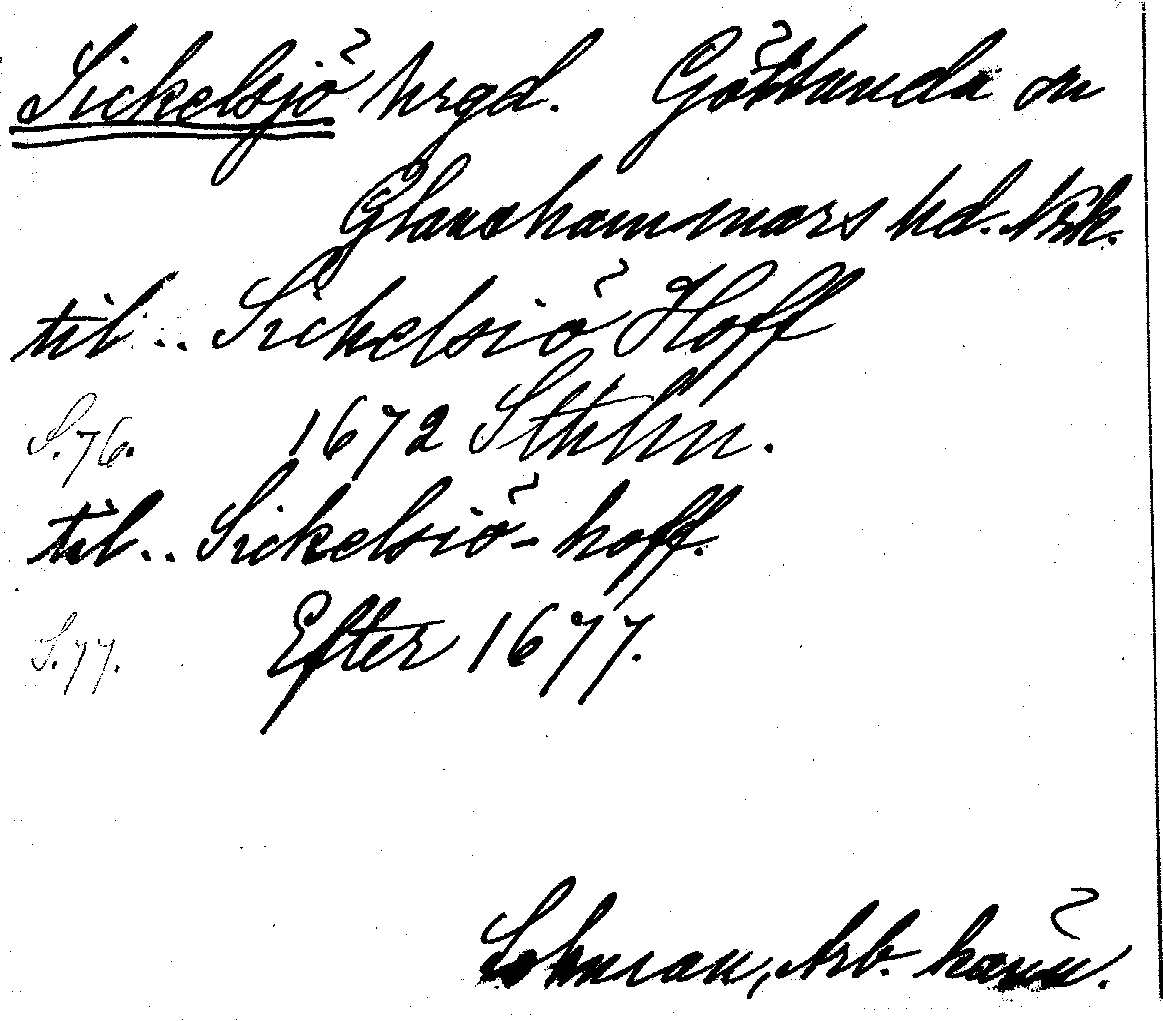 Sickelsjö hrgd. Götlunda sn
Glanshammars hd. Nrk.
til .. Sickelsiö Hoff
S. 76. 1672 Sthlm.
til .. Sickelsiö-hoff.
S. 77. Efter 1677.
Lohman, Arb.